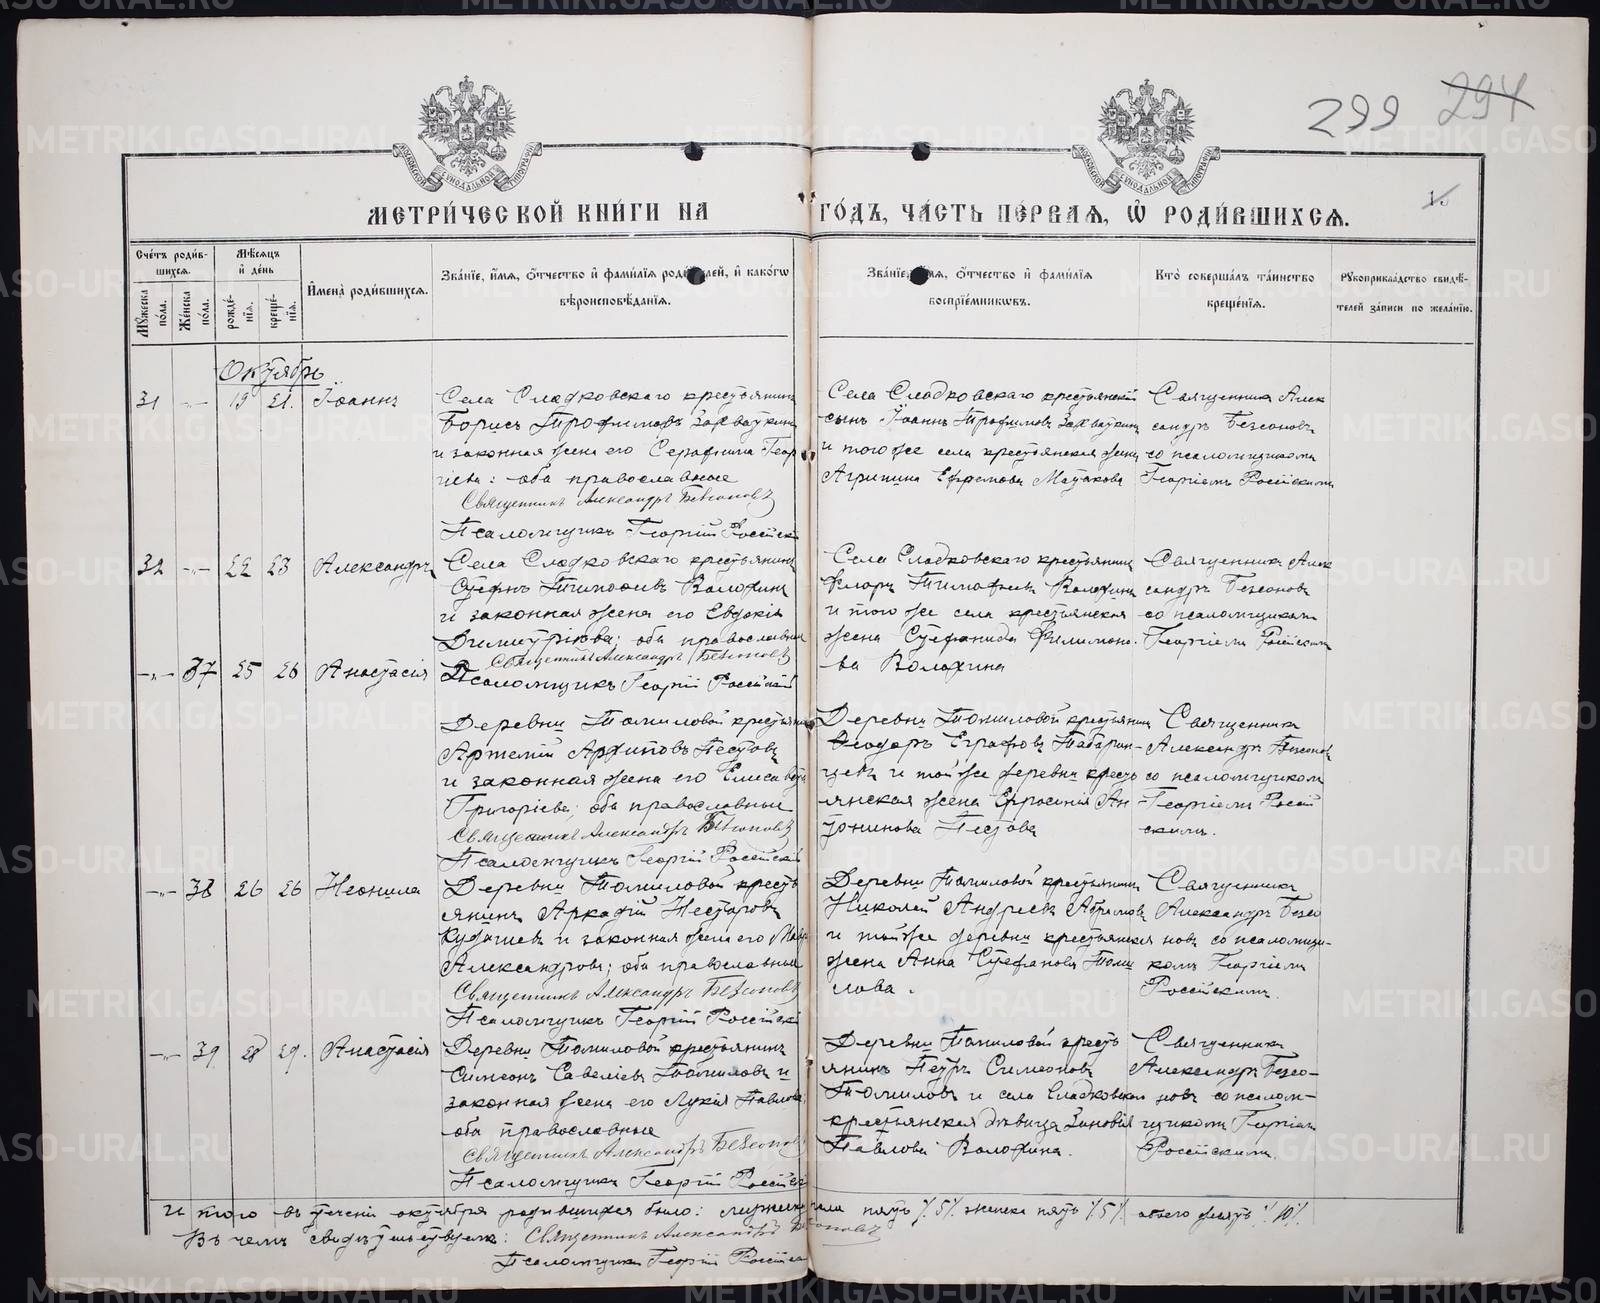 299 294
МЕТРИ́ЧЕСКОЙ КНИ́ГИ НА ГО́ДЪ, ЧА́СТЬ ПЕ́РВАЯ, Ѿ РОДИ́ВШИХСЯ.
Сче́тъ роди́вшихся.
Му́жеска по́ла.
Же́нска по́ла.
Мѣ́сяцъ и҆ де́нь
рожде́нїя.
креще́нїя.
И҆мена̀ роди́вшихся.
Зва́нїе, и҆́мя, ѻ҆́тчество и҆ фами́лїя роди́телей, и҆ како́гѡ вѣроисповѣ́данїя.
Зва́нїе, и҆́мя, ѻ҆́тчество и҆ фами́лїя воспрїе́мникѡвъ.
Кто̀ соверша́лъ та́инство креще́нїя.
Рꙋкоприкла́дство свидѣ́телей за́писи по жела́нїю.
Октябрь
31 -„- 19 21. Іоаннъ
Села Сладковскаго крестьянинъ
Борисъ Трофимовъ
и законная жена его Серафима Геор
гіева: оба православные
Священникъ Александръ Безсоновъ
Псаломщикъ Георгій Россійскій
Села Сладковскаго крестьянскій
сынъ Іоаннъ Трофимовъ
и того же села крестьянская жена
Агрипина Ефремова
Священникъ Алек
сандръ Безсоновъ
со псаломщикомъ
Георгіемъ Россійскимъ
32 -„- 22 23 Александръ
Села Сладковскаго крестьянинъ
Стефанъ Тимофеевъ Волохинъ
и законная жена его Евдокія
Димитріева; оба православные
Священникъ Александръ Безсоновъ
Псаломщикъ Георгій Россійскій
Села Сладковскаго крестьянинъ
Флоръ Тимофеевъ Волохинъ
и того же села крестьянская
жена Стефанида Филимоно-
-ва Волохина
Священникъ Алек
сандръ Безсоновъ
со псаломщикомъ
Георгіемъ Россійскимъ
-„- 37 25 26 Анастасія
Деревни Томиловой крестьянинъ
Артемій Архиповъ Пестовъ
и законная жена его Елисавета
Григоріева; оба православные
Священникъ Александръ Безсоновъ
Псаломщикъ Георгій Россійскій
Деревни Томиловой крестьянинъ
Ѳеодоръ Евграфовъ Табарин-
цевъ и той же деревни кресть
янская жена Ефросинія Ан-
тонинова Пестова
Священникъ
Александръ Безсонов
со псаломщикомъ
Георгіемъ Россій
скимъ.
-„- 38 26 26 Неонила
Деревни Томиловой кресть
янинъ Аркадій Несторовъ
и законная жена его
Александрова; оба православные
Священникъ Александръ Безсоновъ
Псаломщикъ Георгій Россійскій
Деревни Томиловой крестьянинъ
Николай Андреевъ Абрамовъ
и той же деревни крестьянская
жена Анна Стефанова Томи
лова.
Священникъ
Александръ Безсо
новъ со псаломщи-
комъ Георгіемъ
Россійскимъ.
-„- 39 28 29. Анастасія
Деревни Томиловой крестьянинъ
Симеонъ Савеліевъ Томиловъ и
законная жена его Лукія Павлова;
оба православные
Священникъ Александръ Безсоновъ
Псаломщикъ Георгій Россійскій
Деревни Томиловой кресть
янинъ Петръ Симеоновъ
Томиловъ и села Сладковскаго
крестьянская дѣвица Зиновія
Павлова Волохина.
Священникъ
Александръ Безсо-
новъ со псалом-
щикомъ Георгіемъ
Россійскимъ.
Итого въ теченіи октября родившихся было: мужеска пола пять /5/ женска пять /5/ обоего десять /10/
Въ чемъ свидѣтельствуемъ: Священникъ Александръ Безсоновъ
Псаломщикъ Георгій Россійскій